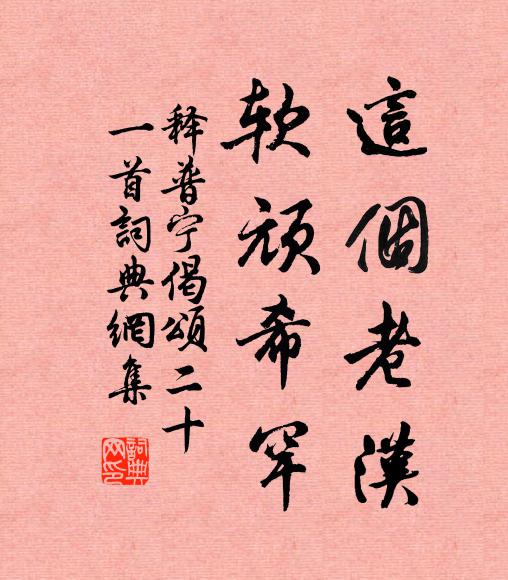 這個老漢
软頑希罕
释普宁偈頌二十
一首詞典網集
詞典
网印